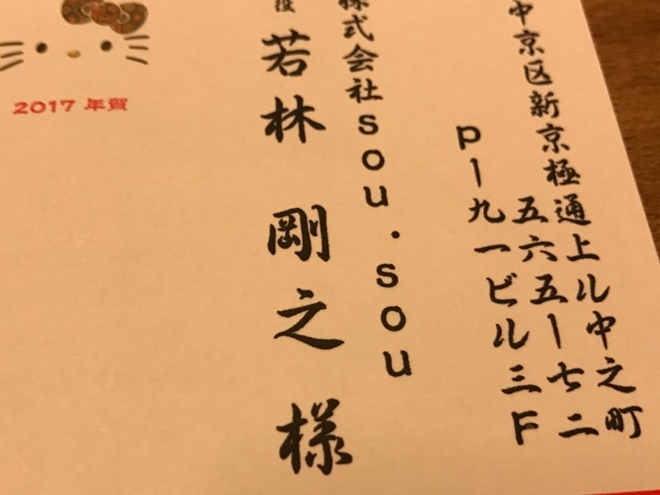 中京区新京極通上ル中之町
五六五ー七二
pー九一ビル三F
株式会社sou.sou
役
若林 剛之 様
2017 年賀